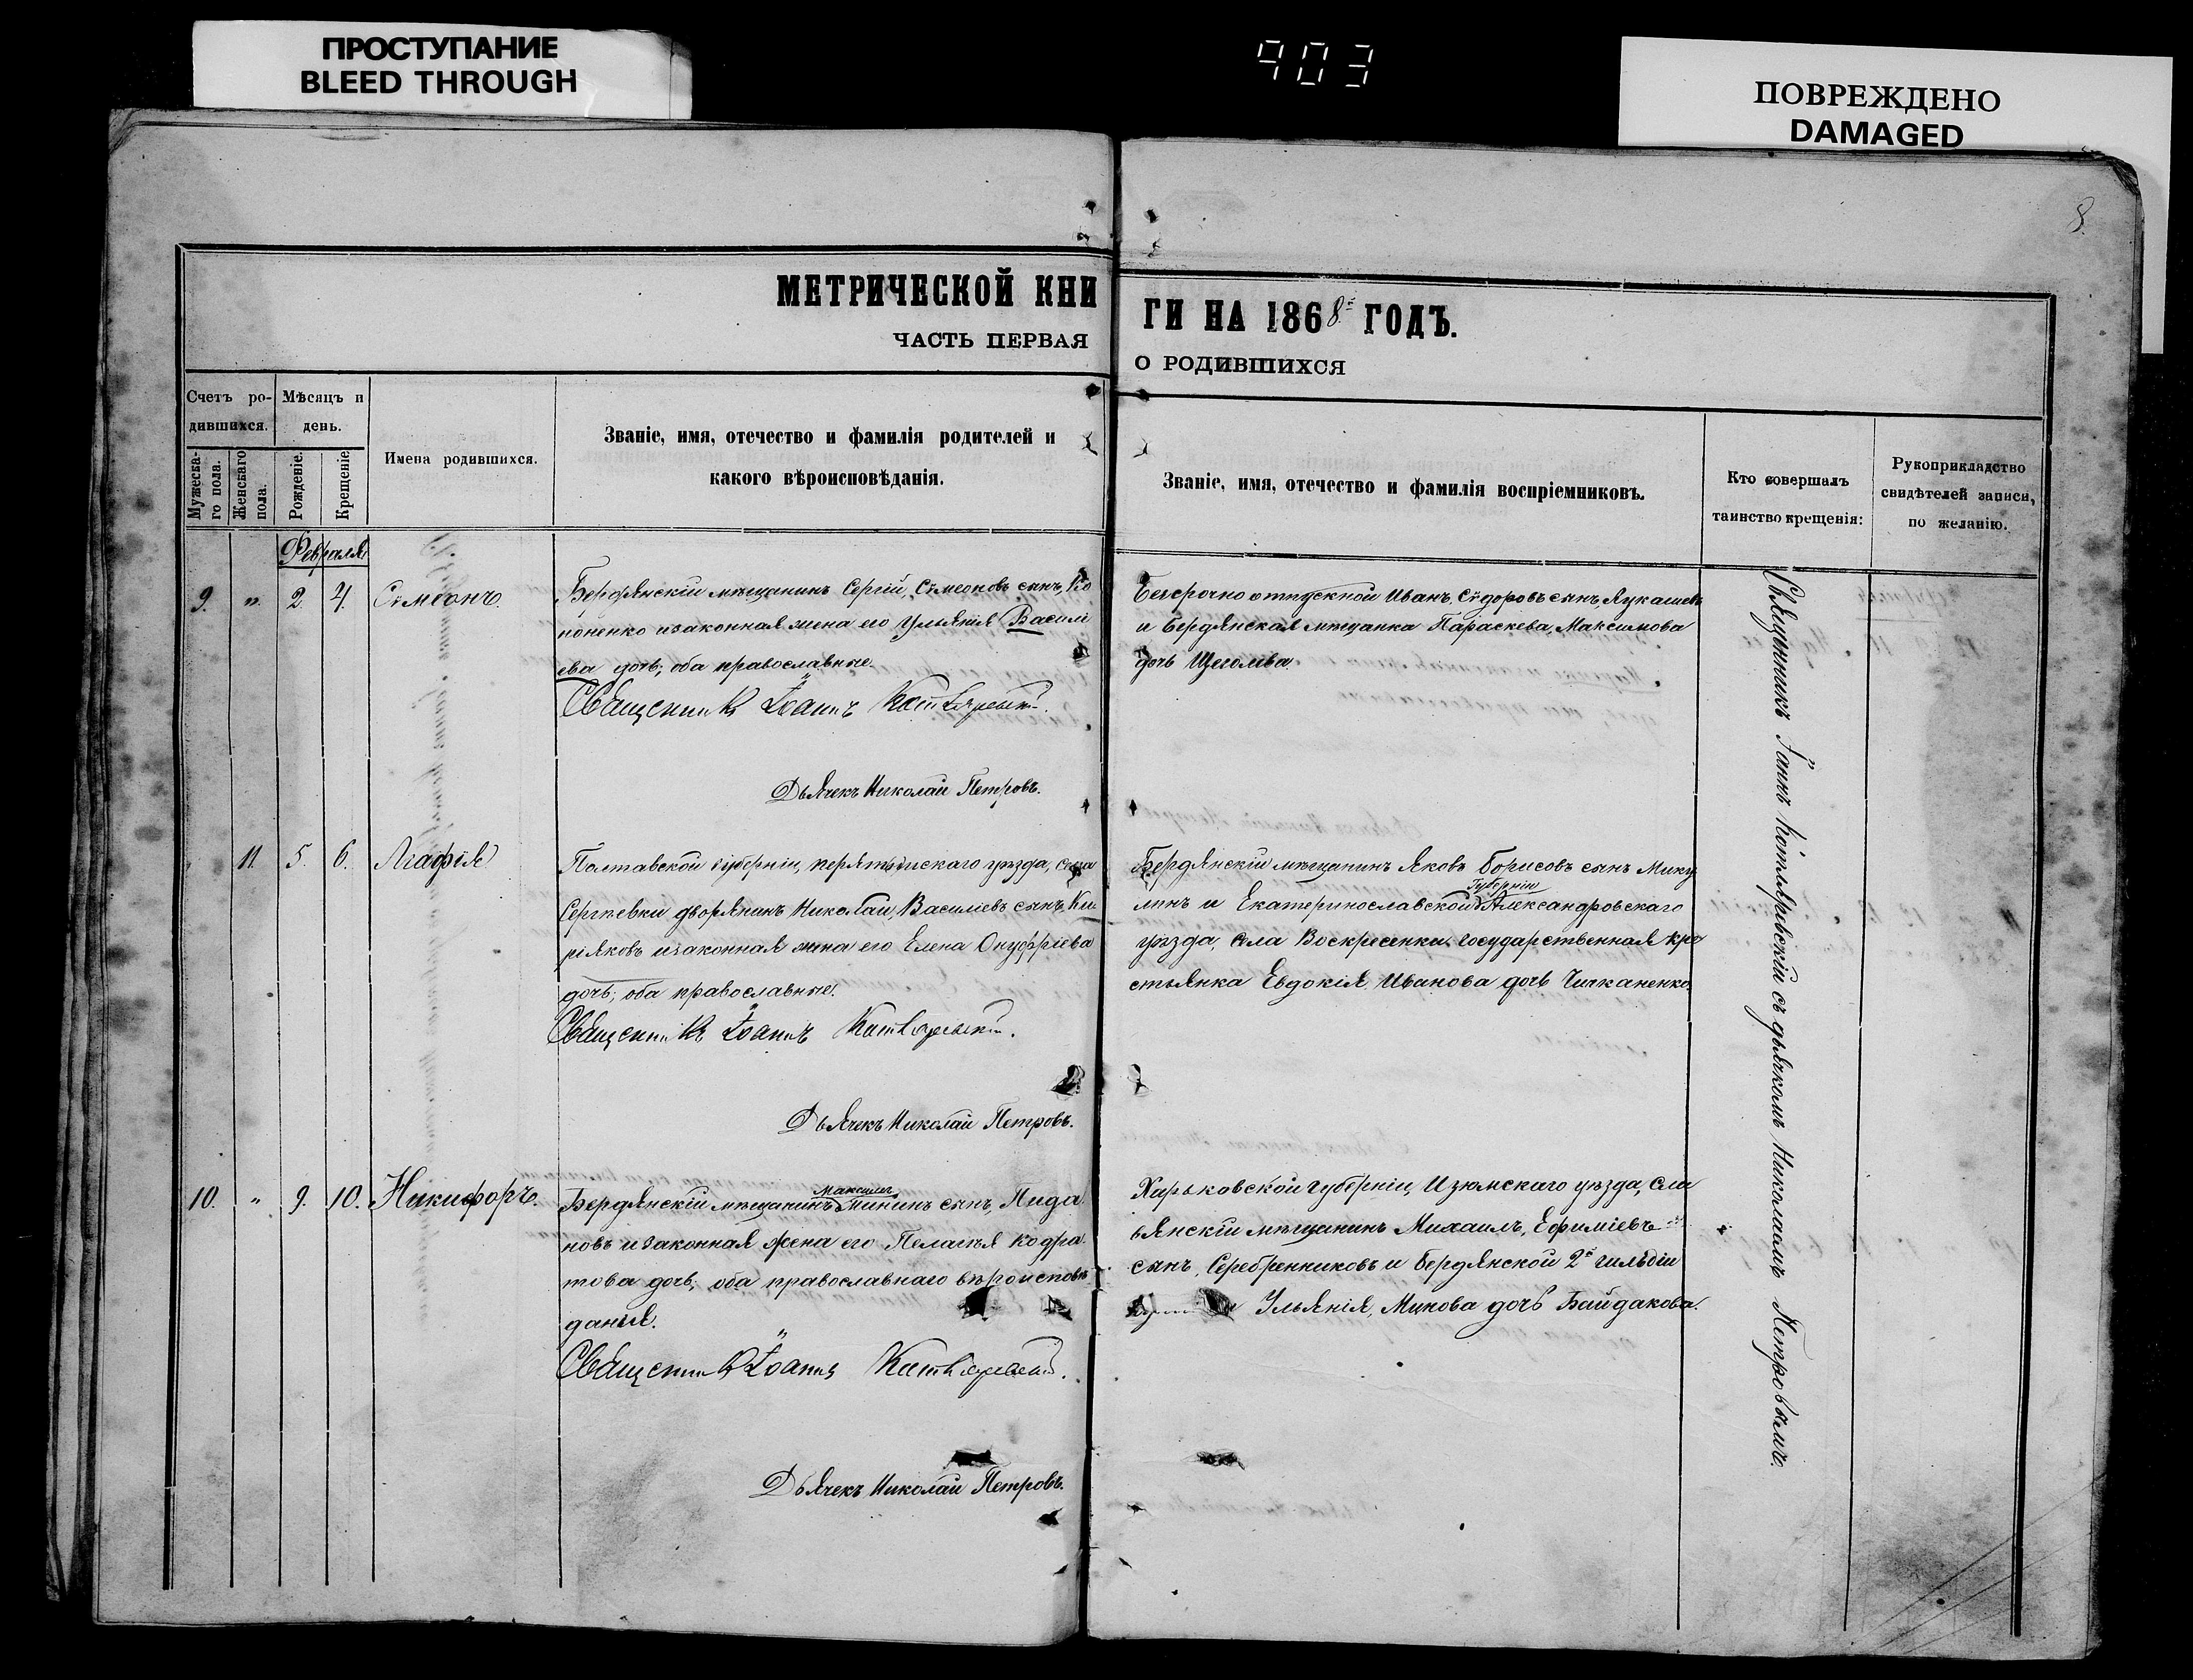 ПРОСТУПАНИЕ
BLEED THROUGH
903
ПОВРЕЖДЕНО
DAMAGED
8.
МЕТРИЧЕСКОЙ КНИ
ГИ НА 1868й ГОДЪ.
ЧАСТЬ ПЕРВАЯ
О РОДИВШИХСЯ
Счетъ ро-
дившихся.
Мѣсяцъ и
день.
Мужеска-
го пола.
Женскаго
пола.
Рожденіе.
Крещеніе.
Имена родившихся.
Званіе, имя, отечество и фамилія родителей и
какого вѣроисповѣданія.
Званіе, имя, отечество и фамилія воспріемниковъ.
Кто совершалъ
таинство крещенія:
Рукоприкладство
свидѣтелей записи,
по желанію.
Февраля
9. " 2. 4. Сѵмеонъ.
Бердянскій мѣщанинъ Сергій, Сѵмеоновъ сынъ, Ко
поненко и законная жена его Ульянія Василі
ева дочь; оба православные.
Священникъ Іоаннъ Котляревскій.
Дьячекъ Николай Петровъ.
Безсрочно отпускной Иванъ, Сѵдоровъ сынъ, Лукашевъ
и Бердянская мѣщанка Параскева, Максимова
дочь Щеголева
11. 5. 6. Агафія
Полтавской губерніи, пирятинскаго уѣзда, села
Сергѣевки дворянинъ Николай, Василіевъ сынъ, Ки-
ріяковъ и законная жена его Елена Онуфріева
дочь; оба православные.
Священникъ Іоаннъ Котляревскій.
Дьячекъ Николай Петровъ.
Бердянскій мѣщанинъ Яковъ Борисовъ сынъ Мику
линъ и Екатеринославской Губерніи Александровскаго
уѣзда, села Воскресенки государственная кре
стьянка Евдокія Иванова дочь Чичканенко.
10. " 9. 10. Никифоръ.
Бердянскій мѣщанинъ Максимъ Мининъ сынъ, Лида
новъ и законная жена его Пелагья Кодра
това дочь; оба православнаго вѣроисповѣ
данія.
Священникъ Іоаннъ Котляревскій.
Дьячекъ Николай Петровъ.
Харьковской губерніи, Изюмскаго уѣзда, сла
вянскій мѣщанинъ Михаилъ, Ефиміевъ
сынъ, Серебренниковъ и бердянской 2й гильдіи
Ульянія, Минова дочь Байдакова.
Священникъ Іаннъ Котляревскій съ дьячкомъ Николаемъ Петровымъ.